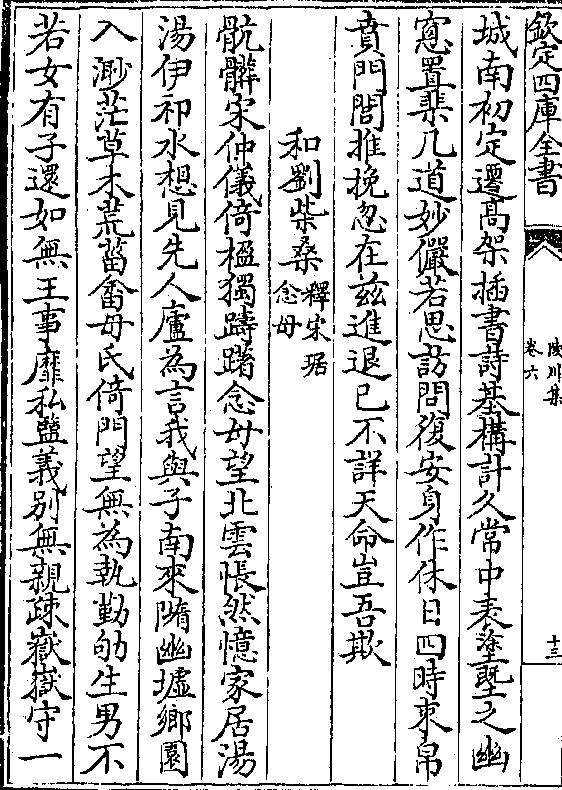 欽定四庫全書
陵川集
卷六
十三
城南初定遷高架插書詩基構計久常中表塗塈之幽
窻置棐几道妙儼若思訪問復安身作休日四時束帛
賁門閭推挽忽在兹進退已不詳天命豈吾欺
和劉柴桑釋宋琚念母
骯髒宋仲儀倚楹獨躊躇念母望北雲悵然憶家居湯
湯伊祁水想見先人廬為言我與子南來隮幽墟鄉園
入渺茫草木荒菑畬母氏倚門望無為執勤劬生男不
若女有子還如無王事靡私盬義別無親疎嶽嶽守一